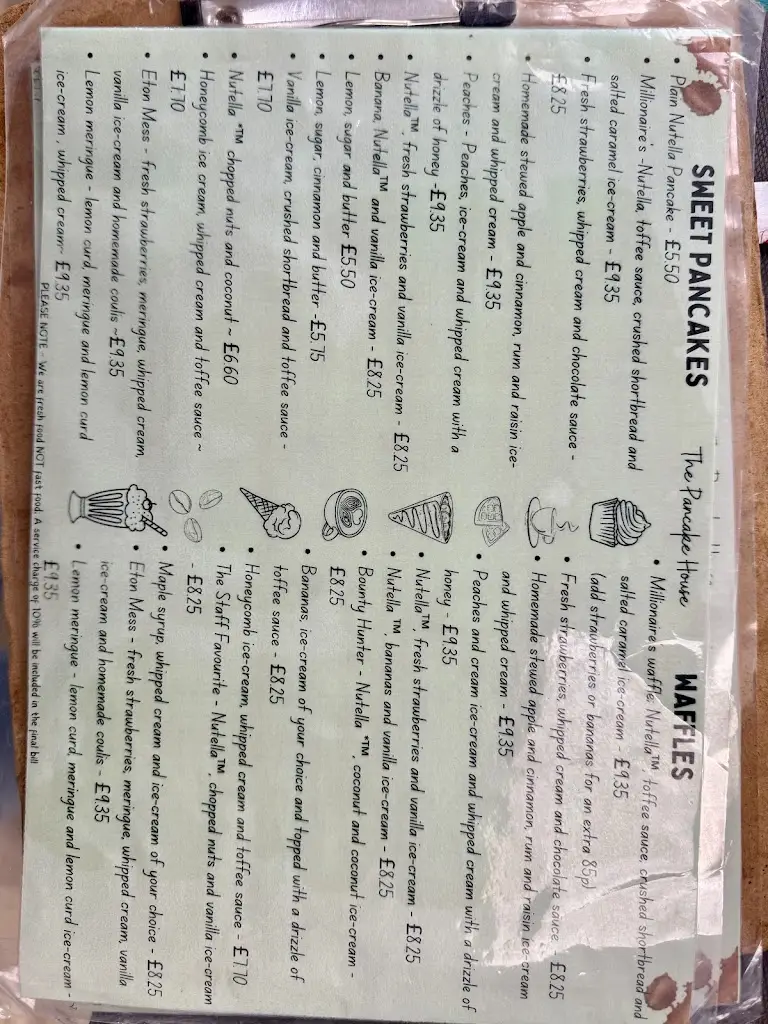 SWEET PANCAKES
• Plain Nutella Pancake - £5.50
• Millionaire's -Nutella, toffee sauce, crushed shortbread and
salted caramel ice-cream - £9.35
• Fresh strawberries, whipped cream and chocolate sauce -
£8.25
• Homemade stewed apple and cinnamon, rum and raisin ice-
cream and whipped cream - £9.35
• Peaches - Peaches, ice-cream and whipped cream with a
drizzle of honey -£9.35
• Nutella™, fresh strawberries and vanilla ice-cream - £8.25
• Banana, Nutella™ and vanilla ice-cream - £8.25
• Lemon, sugar and butter £5.50
• Lemon, sugar, cinnamon and butter -£5.75
• Vanilla ice-cream, crushed shortbread and toffee sauce -
£7.70
• Nutella *™ chopped nuts and coconut ~ £6.60
• Honeycomb ice cream, whipped cream and toffee sauce ~
£7.70
• Eton Mess - fresh strawberries, meringue, whipped cream,
vanilla ice-cream and homemade coulis ~£9.35
• Lemon meringue - lemon curd, meringue and lemon curd
ice-cream , whipped cream~ £9.35
The Pancake House
WAFFLES
• Millionaire's waffle, Nutella™, toffee sauce, crushed shortbread and
salted caramel ice-cream - £9.35
(add strawberries or bananas for an extra 85p)
• Fresh strawberries, whipped cream and chocolate sauce - £8.25
• Homemade stewed apple and cinnamon, rum and raisin ice-cream
and whipped cream - £9.35
• Peaches and cream ice-cream and whipped cream with a drizzle of
honey - £9.35
• Nutella™, fresh strawberries and vanilla ice-cream - £8.25
• Nutella ™, bananas and vanilla ice-cream - £8.25
• Bounty Hunter - Nutella *™, coconut and coconut ice-cream -
£8.25
• Bananas, ice-cream of your choice and topped with a drizzle of
toffee sauce - £8.25
• Honeycomb ice-cream, whipped cream and toffee sauce - £7.70
• The Staff Favourite - Nutella™, chopped nuts and vanilla ice-cream
- £8.25
• Maple syrup, whipped cream and ice-cream of your choice - £8.25
• Eton Mess - fresh strawberries, meringue, whipped cream, vanilla
ice-cream and homemade coulis - £9.35
• Lemon meringue - lemon curd, meringue and lemon curd ice-cream -
£9.35
PLEASE NOTE - We are fresh food NOT fast food. A service charge of 10% will be included in the final bill